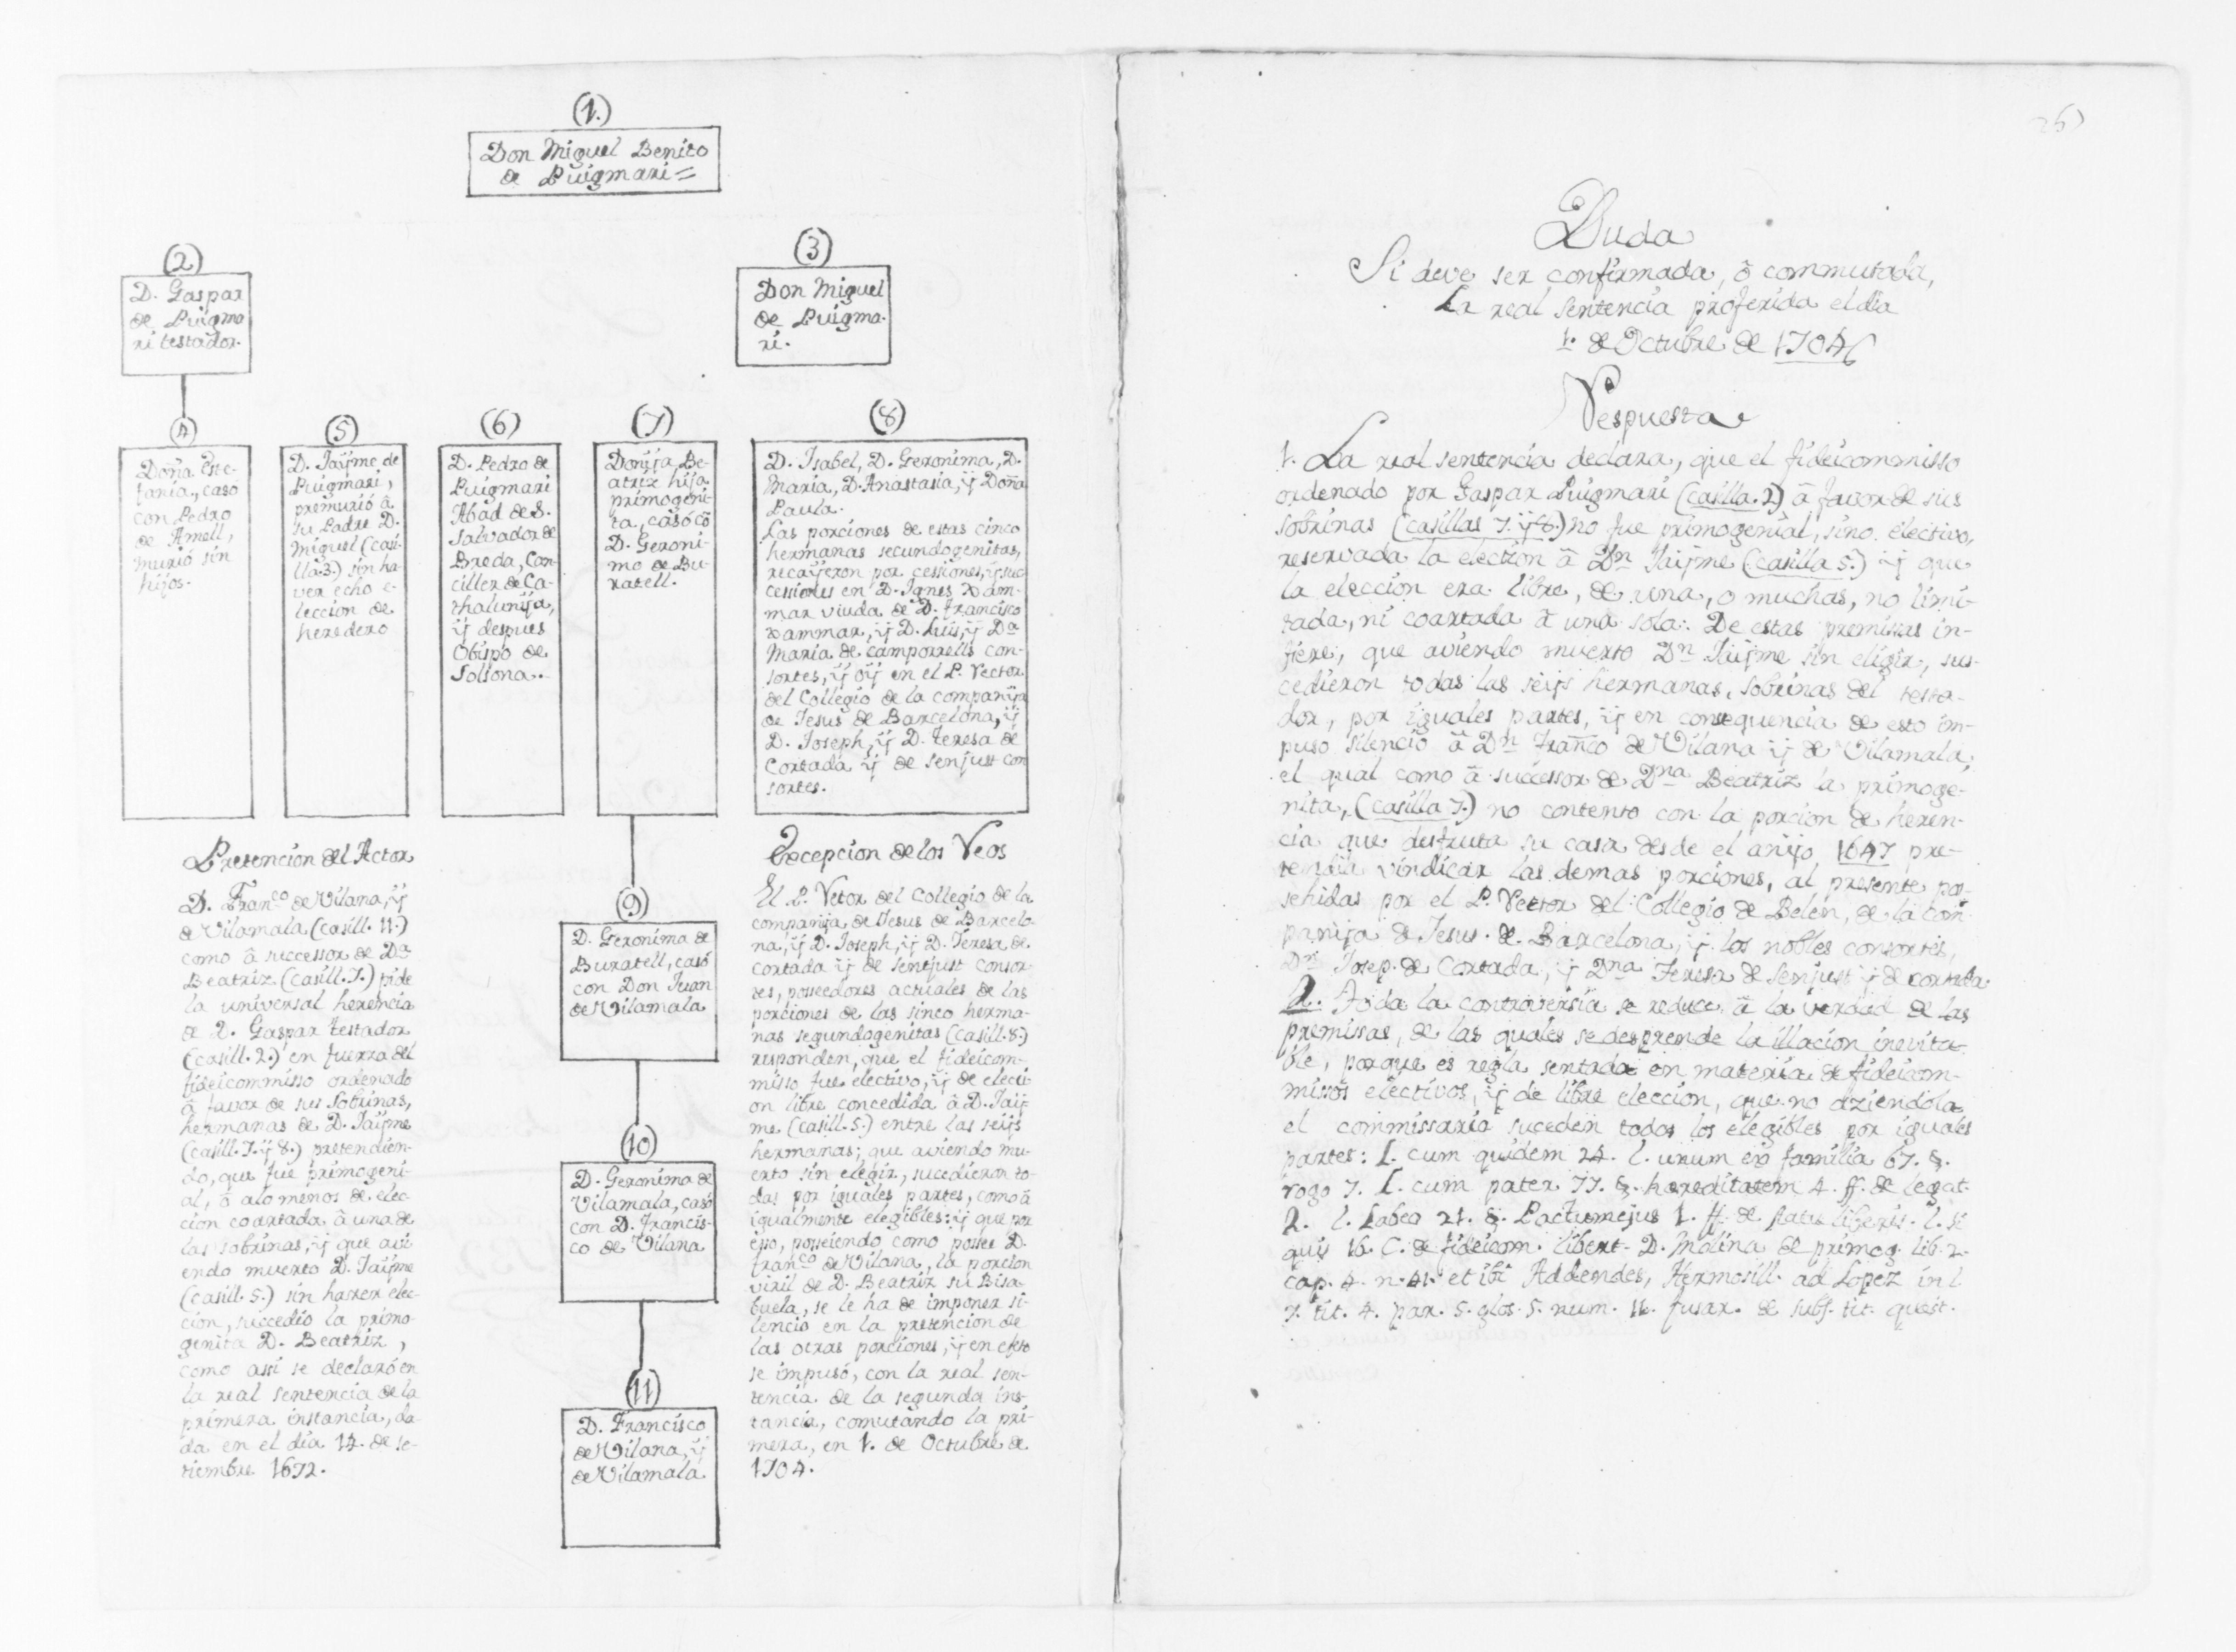 (1.)
Don Miguel Benito
de Puigmari =
(2)
D. Gaspar
de Puigma
ri testador.
(3)
Don Miguel
de Puigma-
ri.
(4)
Doña Este-
fania, caso
con Pedro
de Amell,
murió sin
hijos.
(5)
D. Jaÿme de
Puigmari,
premurió â
su Padre D.
Miguel (casi-
lla.3.) sin ha-
ver echo e-
leccion de
heredero
(6)
D. Pedro de
Puigmari
Abad de S.
Salvador de
Breda, Can-
ciller de Ca-
thalunÿa,
ÿ despues
Obispo de
Solsona..
(7)
Donÿa Be-
atriz hija
primogeni-
ta, casó cõ
D. Geroni-
mo de Bu-
ratell.
(8)
D. Isabel, D. Geronima, D.
Maria, D. Anastasia, ÿ Doña
Paula.
Las porciones de estas cinco
hermanas secundogenitas,
recaÿeron por cessiones, ÿ suc
cessiones en D. Ignes Xam-
mar viuda de D. Francisco
Xammar, ÿ D. Luis, ÿ Dª
Maria de Camporrells con-
sortes, ÿ oÿ en el P. Rector
del Collegio de la companÿa
de Jesus de Barcelona, ÿ
D. Joseph, ÿ D. Teresa de
Cortada ÿ de Senjust con
sortes.
Pretencion del Actor
D. Franco de Vilana, ÿ
de Vilamala (casill. 11.)
como â successor de Dª
Beatriz (casill. 7.) pide
la universal herencia
de D. Gaspar testador
(casill. 2.) en fuerza del
fideicommisso ordenado
â favor de sus Sobrinas,
hermanas de D. Jaÿme
(casill. 7. ÿ 8.) pretendien-
do, que fue primogeni-
al, ô alo menos de elec-
cion coartada â una de
las sobrinas, ÿ que avi
endo muerto D. Jaÿme
(casill. 5.) sin haser elec-
cion, succedio la primo-
genita D. Beatriz,
como assi se declaró en
la real sentencia de la
primera instancia, da-
da en el dia 14. de se-
tiembre 1672.
(9)
D. Geronima de
Buratell, casó
con Don Juan
de Vilamala
(10)
D. Geronima de
Vilamala, casó
con D. Francis-
co de Vilana
(11)
D. Francisco
de Vilana, ÿ
de Vilamala
Excepcion de los Reos
El P. Retor del Collegio de la
companÿa de Jesus de Barcelo-
na, ÿ D. Joseph, ÿ D. Teresa de
Cortada ÿ de Sentjust consor-
tes, posseedores actuales de las
porciones de las sinco herma-
nas segundogenitas (casill. 8.)
responden, que el fideicom-
misso fue electivo, ÿ de eleci-
on libre concedida â D. Jaÿ
me (casill. 5.) entre las seÿs
hermanas; que aviendo mu-
erto sin elegir, sucedieron to-
das por iguales partes, como â
igualmente elegibles: ÿ que por
esso, posseiendo como posses D.
Franco de Vilana, la porcion
viril de D. Beatriz su Bisa-
buela, se le ha de imponer si-
lencio en la pretencion de
las otras porciones, ÿ en efeto
se impusó, con la real sen-
tencia de la segunda ins-
tancia, comutando la pri-
mera, en 1. de Octubre de
1704.
Duda
Si deve ser confirmada, ô commutada,
La real sentencia proferida el dia
1. de Octubre de 1704
Respuesta
1. La real sentencia declara, que el fideicommisso
ordenado por Gaspar Puigmari (casilla. 2) â favor de sus
sobrinas (casillas 7. ÿ 8.) no fue primogenial, sino electivo,
reservada la election â Dn Jaÿme (casilla 5.) ÿ que
la eleccion era libre, de una, o muchas, no limi-
tada, ni coartada â una sola: De estas premissas in-
fiere, que aviendo muerto Dn Jaÿme sin eligir, suc-
cedieron todas las seÿs hermanas, sobrinas del testa-
dor, por iguales partes, ÿ en consequencia de esto im-
puso silencio â Dn Franco de Vilana ÿ de Vilamala,
el qual como â successor de Dna Beatriz la primoge-
nita, (casilla 7.) no contento con la porcion de heren-
cia que desfruta su casa desde el anÿo 1647 pre-
tendia vindicar las demas porciones, al presente pos-
sehidas por el P. Rector del Collegio de Belen, de la com
panÿa de Jesus de Barcelona, ÿ los nobles consortes,
Dn Josep. de Cortada, ÿ Dna Teresa de Senjust ÿ de cortada
2. Toda la controversia se reduce â la verdad de las
premissas, de las quales se desprende la illacion inevita-
ble, porque es regla sentada en materia de fideicom-
missos electivos, ÿ de libre eleccion, que no aziendola
el commissario suceden todos los elegibles por iguales
partes: l. cum quidem 24. l. unum ex familia 67. §.
rogo 7. l. cum pater 77. §. hereditatem 4. ff. de legat.
2. l. Labeo 21. §. Pactumejus 1. ff. de statu liberis. l. si
quis 16. C. de fideicom. libert. D. Molina de primog. lib. 2.
cap. 4. n. 41. et ibi Addendes, Hermosill. ad Lopez in l.
7. tit. 4. par. 5. glos. 5. num. 11. fusar. de subs. tit. quest.